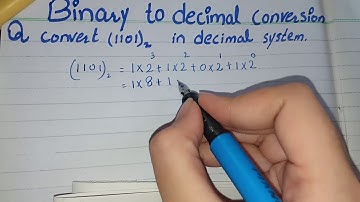 Binary to decimal conversion
Q convert (1101)₂ in decimal system.
(1101)₂ = 1×2³+1×2²+0×2¹+1×2⁰
= 1×8+1